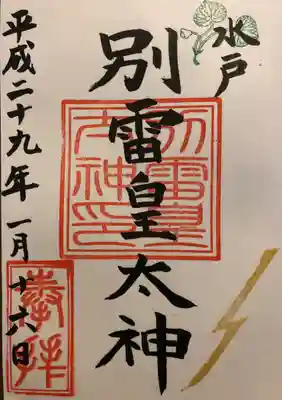 水戸
別雷皇太神
別雷皇太神印
奉拝
平成二十九年一月十六日